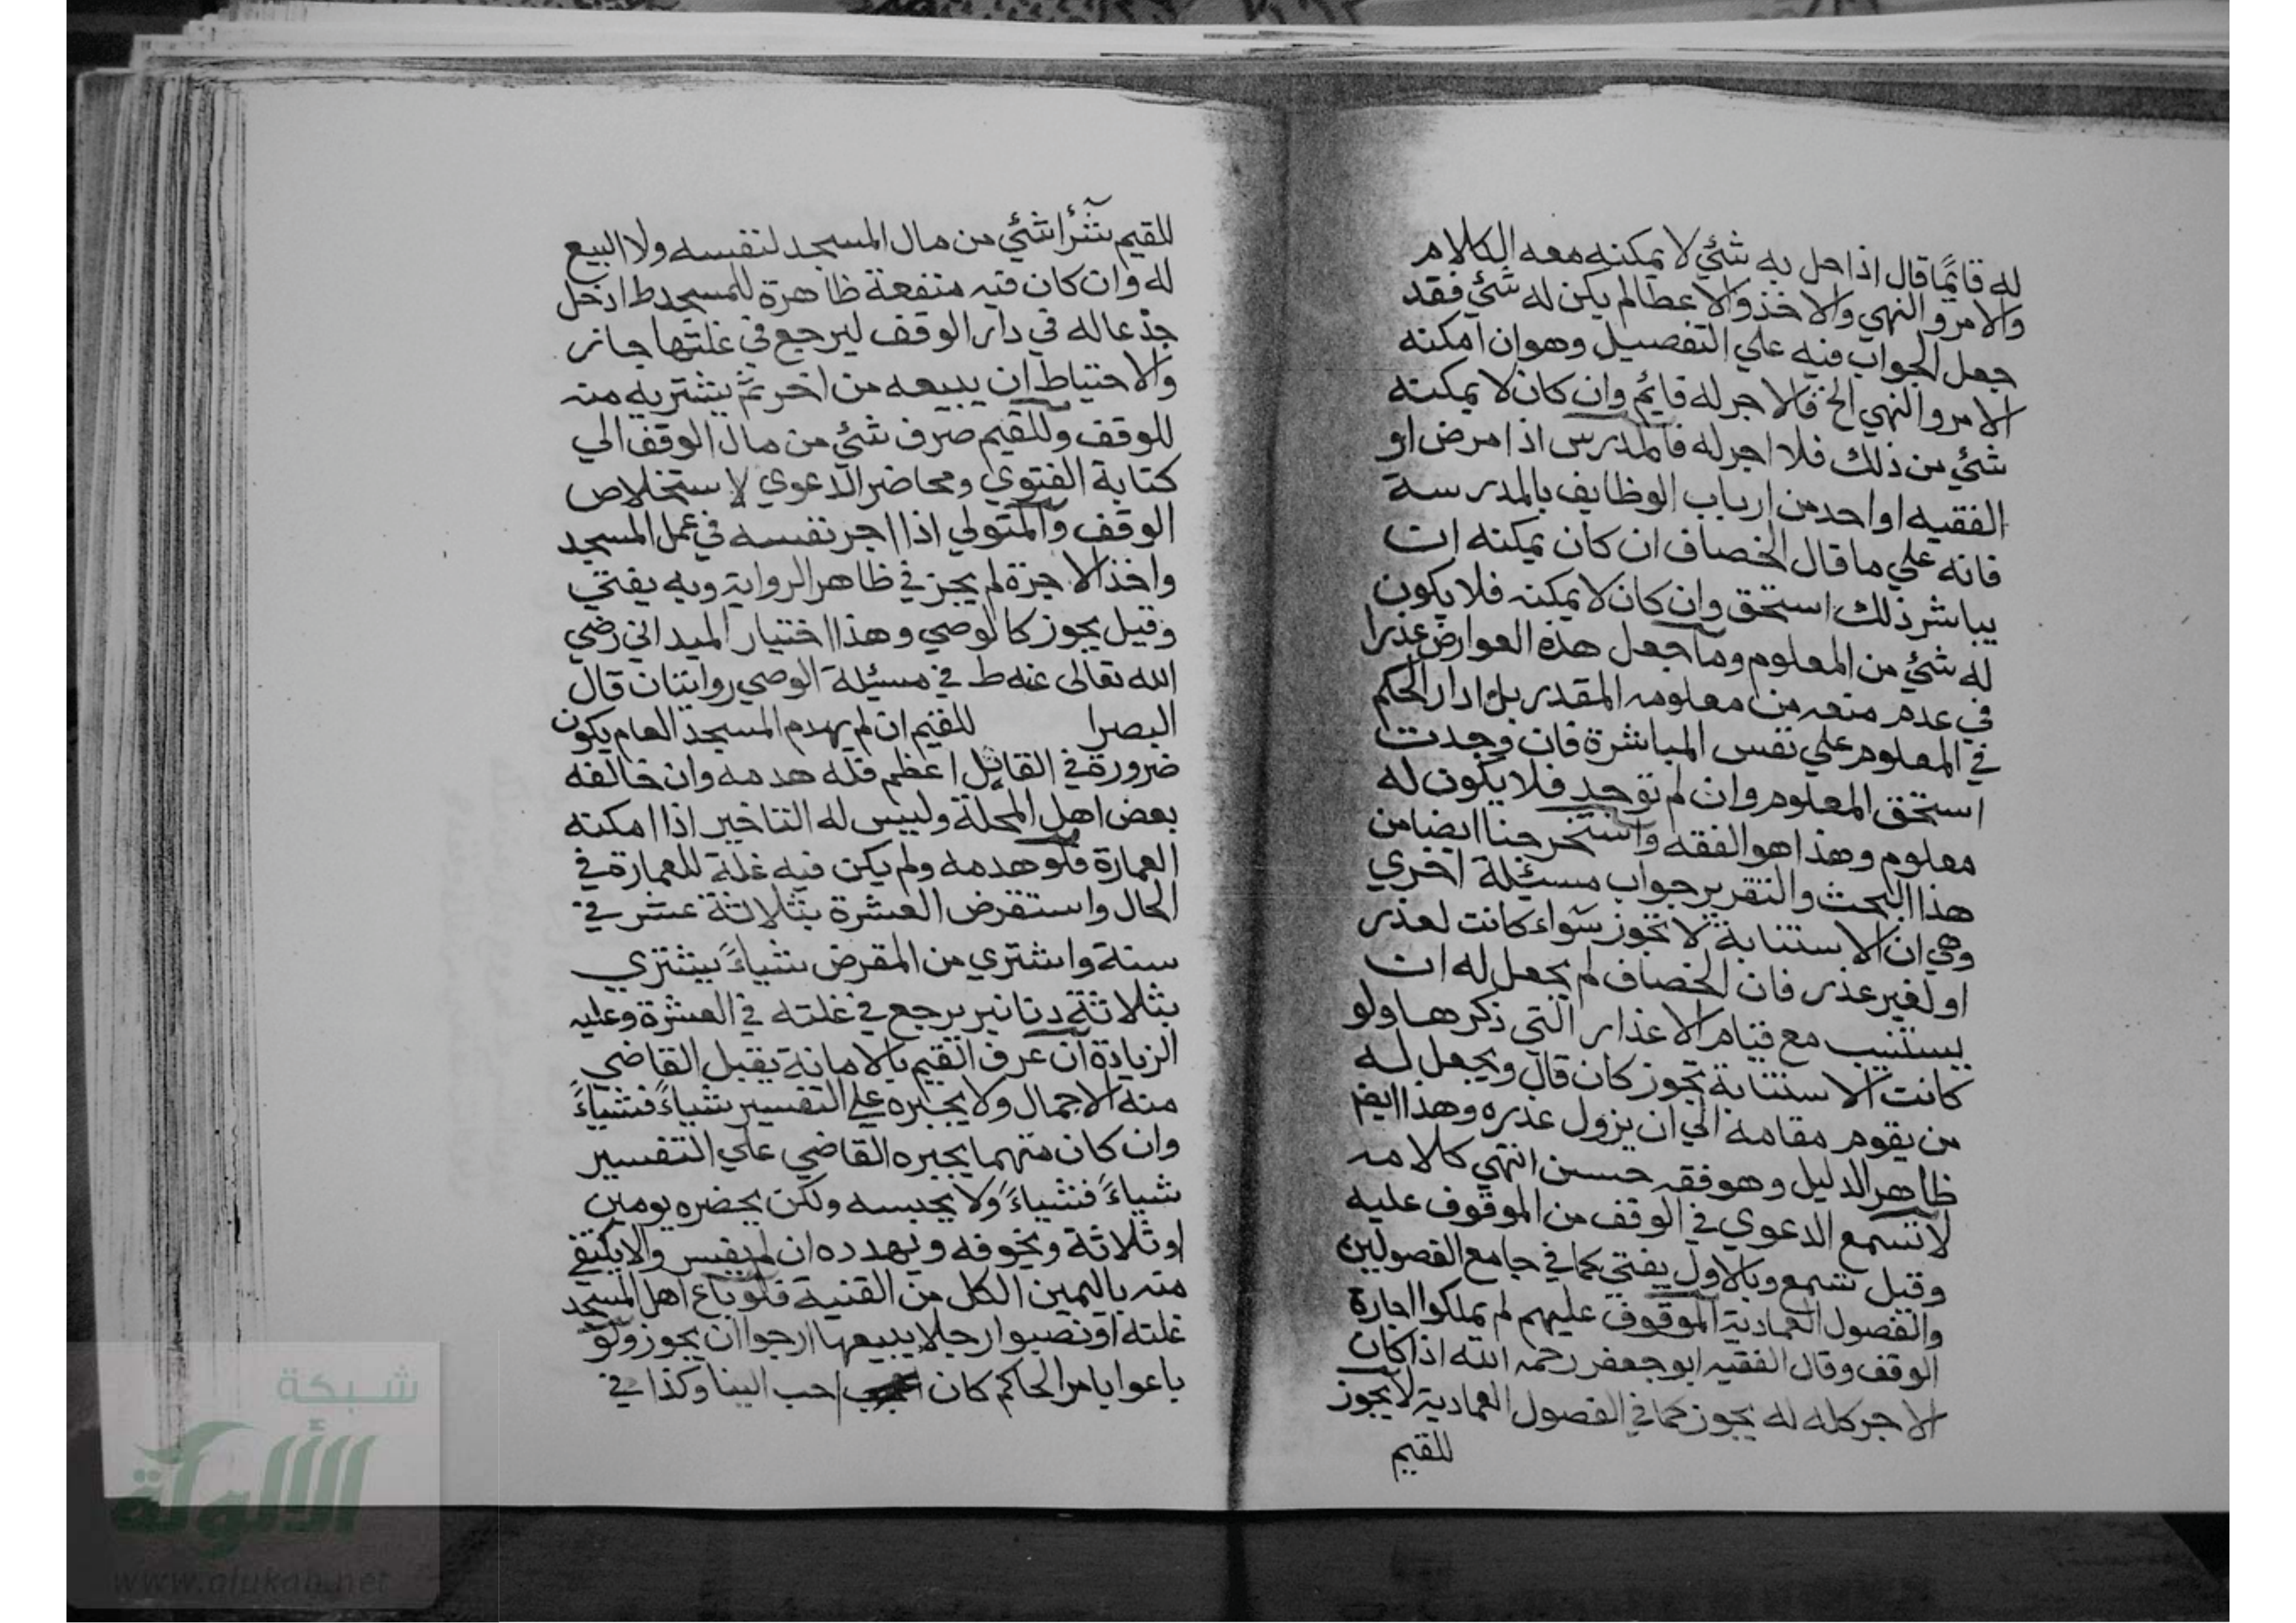 له قائمًا قال اذا حل به شئي لا يمكنه معه الكلام
والامر والنهي والاخذ والاعطا لم يكن له شئي فقد
جعل الجواب فيه علي التفصيل وهو ان امكنه
الامر والنهي الخ فالاجر له قايم وان كان لا يمكنه
شئي من ذلك فلا اجر له فالمدرس اذا مرض او
الفقيه او احد من ارباب الوظايف بالمدرسة
فانه علي ما قال الخصاف ان كان يمكنه ان
يباشر ذلك استحق وان كان لا يمكنه فلا يكون
له شئي من المعلوم وما جعل هذه العوارض عذرا
في عدم منعه من معلومه المقدر بل ادار الحكم
في المعلوم علي نفس المباشرة فان وجدت
استحق المعلوم وان لم توجد فلا يكون له
معلوم وهذا هو الفقه واستخرجنا ايضا من
هذا البحث والتقرير جواب مسئلة اخري
وهي ان الاستنابة لا تجوز سواء كانت لعذر
او لغير عذر فان الخصاف لم يجعل له ان
يستنيب مع قيام الاعذار التي ذكرها ولو
كانت الاستنابة تجوز كان قال ويجعل له
من يقوم مقامه الي ان يزول عذره وهذا ايض
ظاهر الدليل وهو فقه حسن انتهي كلامه
لا تسمع الدعوي في الوقف من الموقوف عليه
وقيل تسمع وبالاول يفتي كما في جامع الفصولين
والفصول العمادية الموقوف عليهم لم يملكوا اجارة
الوقف وقال الفقيه ابو جعفر رحمه الله اذا كان
الاجر كله له يجوز كما في الفصول العمادية لا يجوز
للقيم
للقيم شرآ شئي من مال المسجد لنفسه ولا البيع
له وان كان فيه منفعة ظاهرة للمسجد ط ادخل
جذعا له في دار الوقف ليرجع في غلتها جاز
والاحتياط ان يبيعه من اخر ثم يشتريه منه
للوقف وللقيم صرف شئي من مال الوقف الي
كتابة الفتوي ومحاضر الدعوي لاستخلاص
الوقف والمتولي اذا اجر نفسه في عمل المسجد
واخذ الاجرة لم يجز في ظاهر الرواية وبه يفتي
وقيل يجوز كالوصي وهذا اختيار الميداني رضي
الله تعالى عنه ط في مسئلة الوصي روايتان قال
البصرا للقيم ان لم يهدم المسجد العام يكون
ضرورة في القابل اعظم فله هدمه وان خالفه
بعض اهل المحلة وليس له التاخير اذا امكنه
العمارة فلو هدمه ولم يكن فيه غلة للعمارة في
الحال واستقرض العشرة بثلاثة عشر في
سنة واشتري من المقرض شياءً يشتري
بثلاثة دنانير يرجع في غلته في العشرة وعليه
الزيادة ان عرف القيم بالامانة يقبل القاضي
منه الاجمال ولا يجبره علي التفسير شياءً فشياءً
وان كان متهما يجبره القاضي علي التفسير
شياءً فشياءً ولا يحبسه ولكن يحضره يومين
او ثلاثة ويخوفه ويهدده ان لم يفسر والا يكتفي
منه باليمين الكل من القنية فلو باع اهل المسجد
غلته او نصبوا رجلا يبيعها ارجوا ان يجوز ولو
باعوا بامر الحاكم كان احب الينا وكذا في
شبكة
الألوكة
www.alukah.net